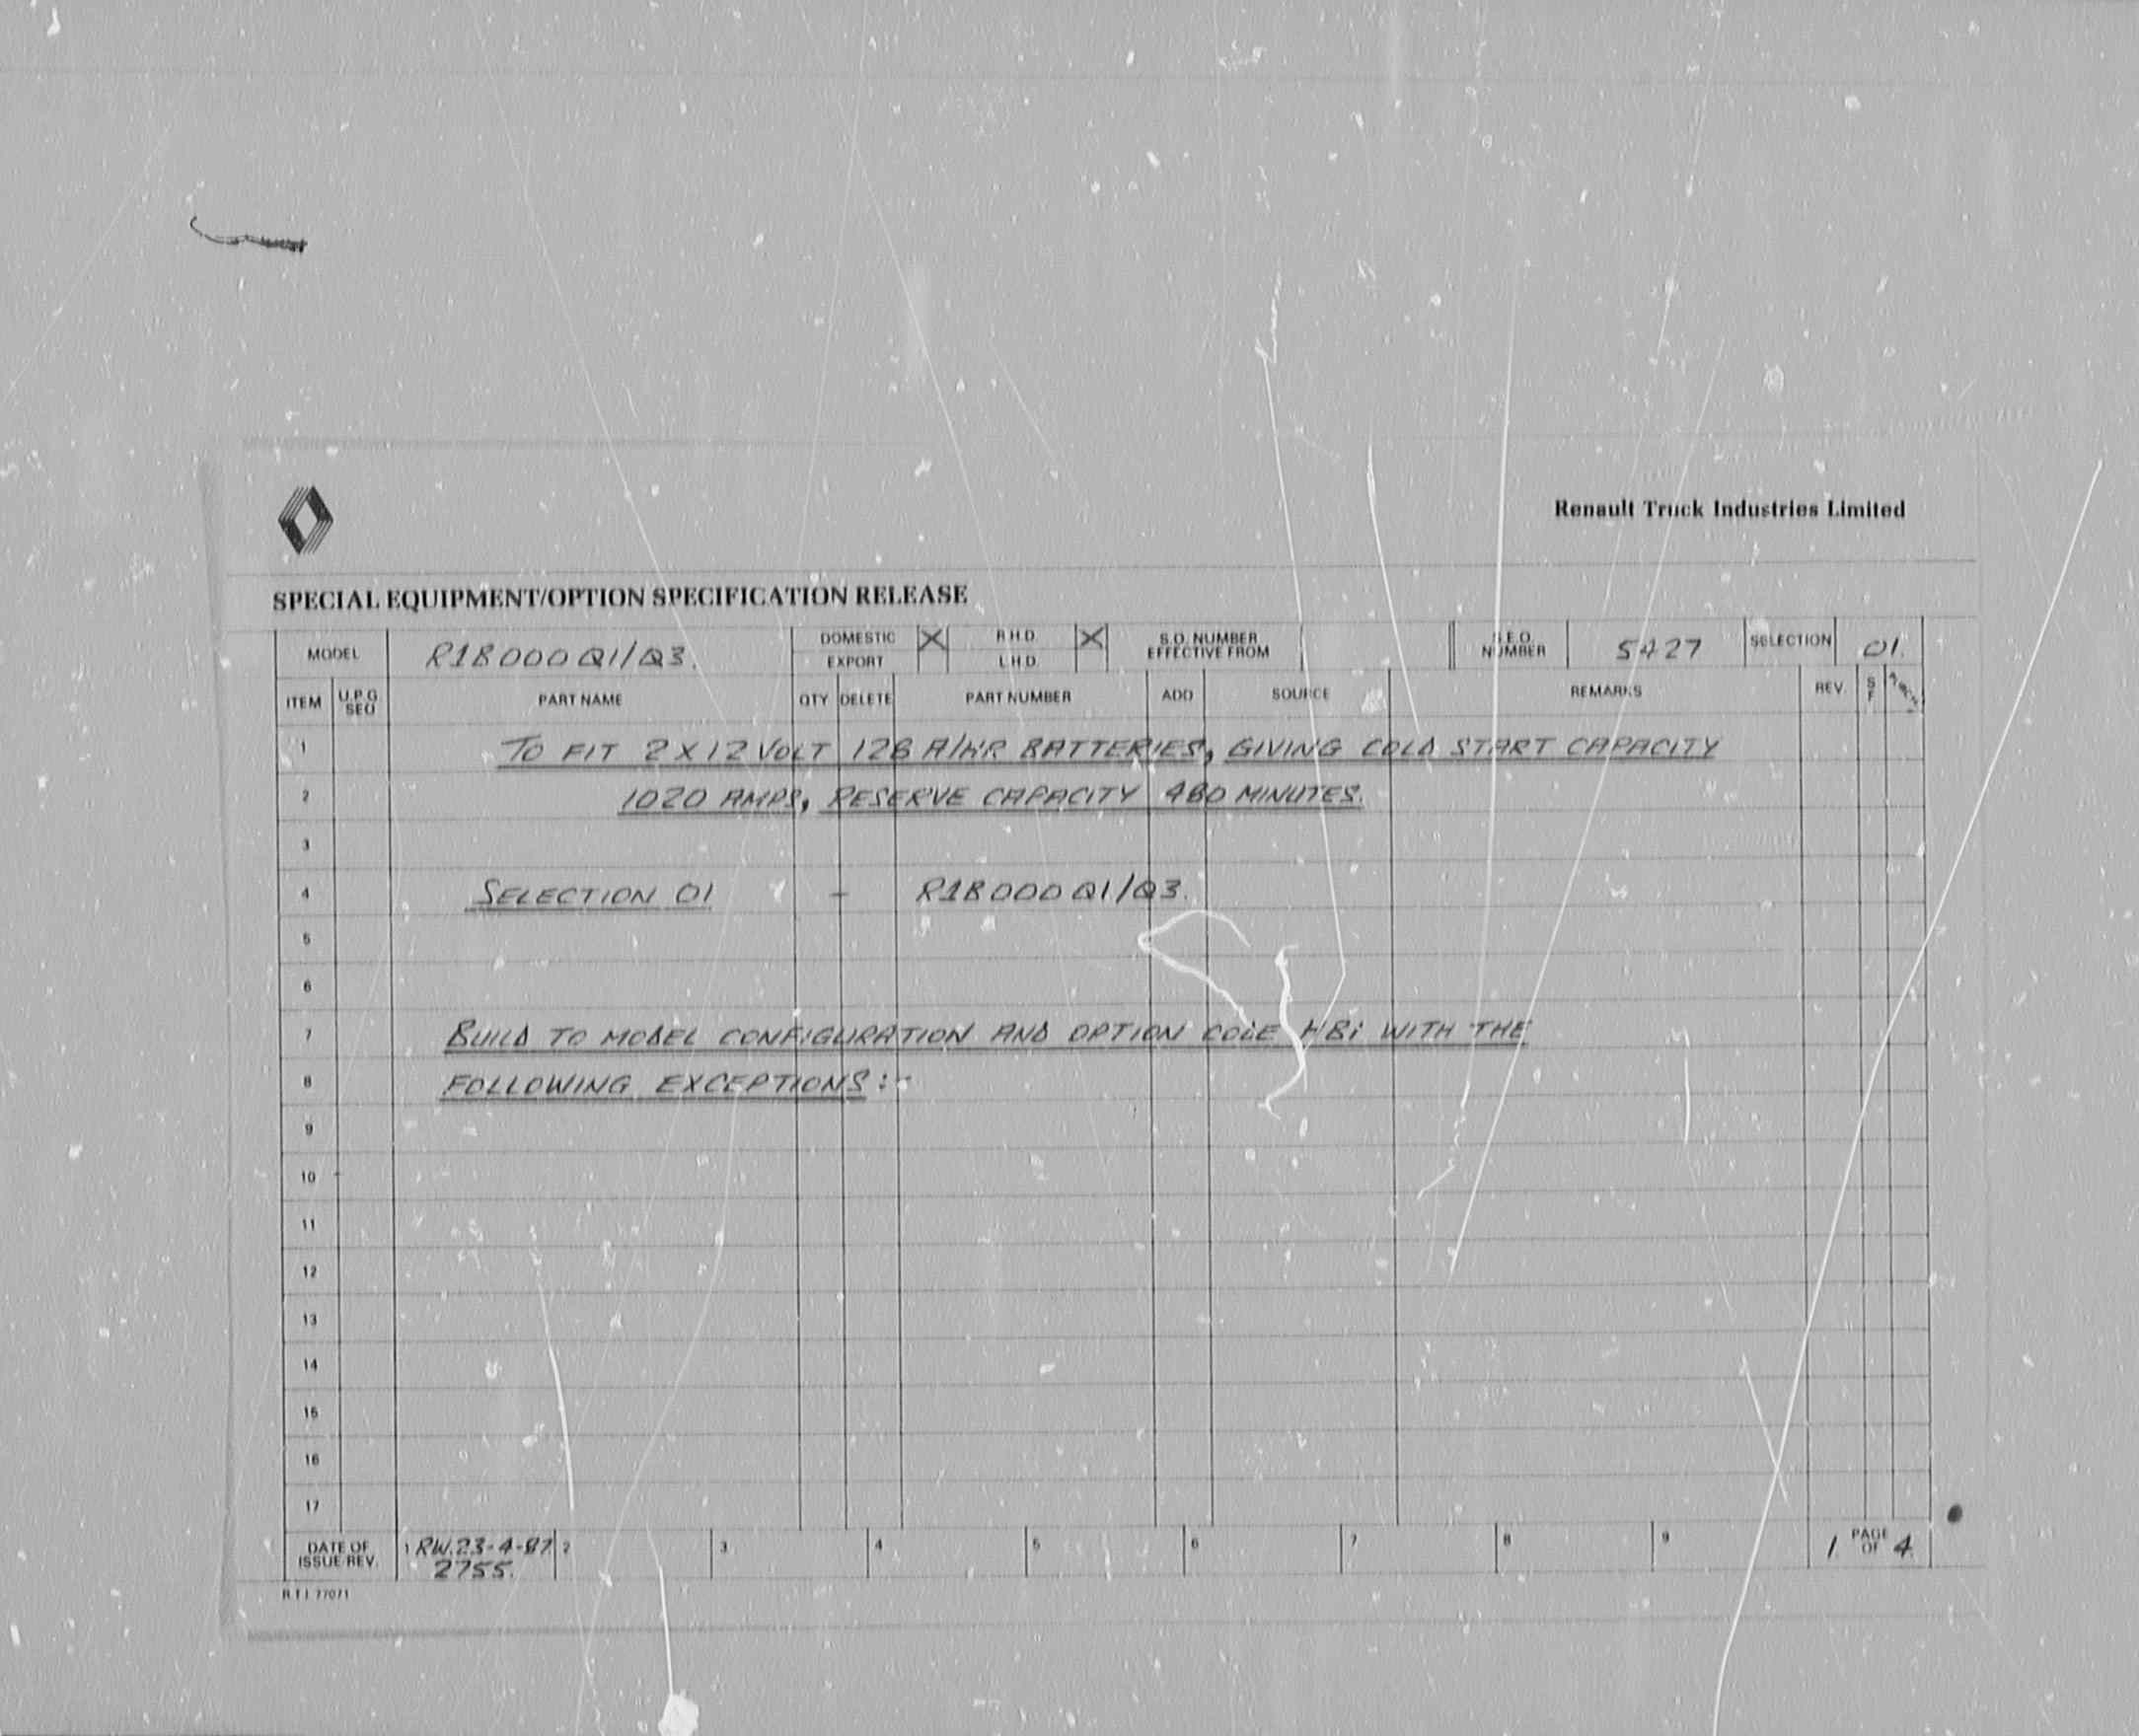 Renault Truck Industries Limited
SPECIAL EQUIPMENT/OPTION SPECIFICATION RELEASE
MODEL R18000Q1/Q3. DOMESTIC X R.H.D. X S.O. NUMBER EFFECTIVE FROM S.E.O. NUMBER 5427 SELECTION 01.
EXPORT L.H.D.
ITEM U.P.G SEQ PART NAME QTY DELETE PART NUMBER ADD SOURCE REMARKS REV. S F
1 TO FIT 2 X 12 VOLT 128 A/HR BATTERIES, GIVING COLD START CAPACITY
2 1020 AMPS, RESERVE CAPACITY 480 MINUTES.
3
4 SELECTION 01 - R18000Q1/Q3.
5
6
7 BUILD TO MODEL CONFIGURATION AND OPTION CODE HB1 WITH THE
8 FOLLOWING EXCEPTIONS:-
9
10
11
12
13
14
15
16
17
DATE OF ISSUE/REV. 1 RW.23-4-87 2 3 4 5 6 7 8 9 1. PAGE OF 4.
2755.
R.T.I. 77071